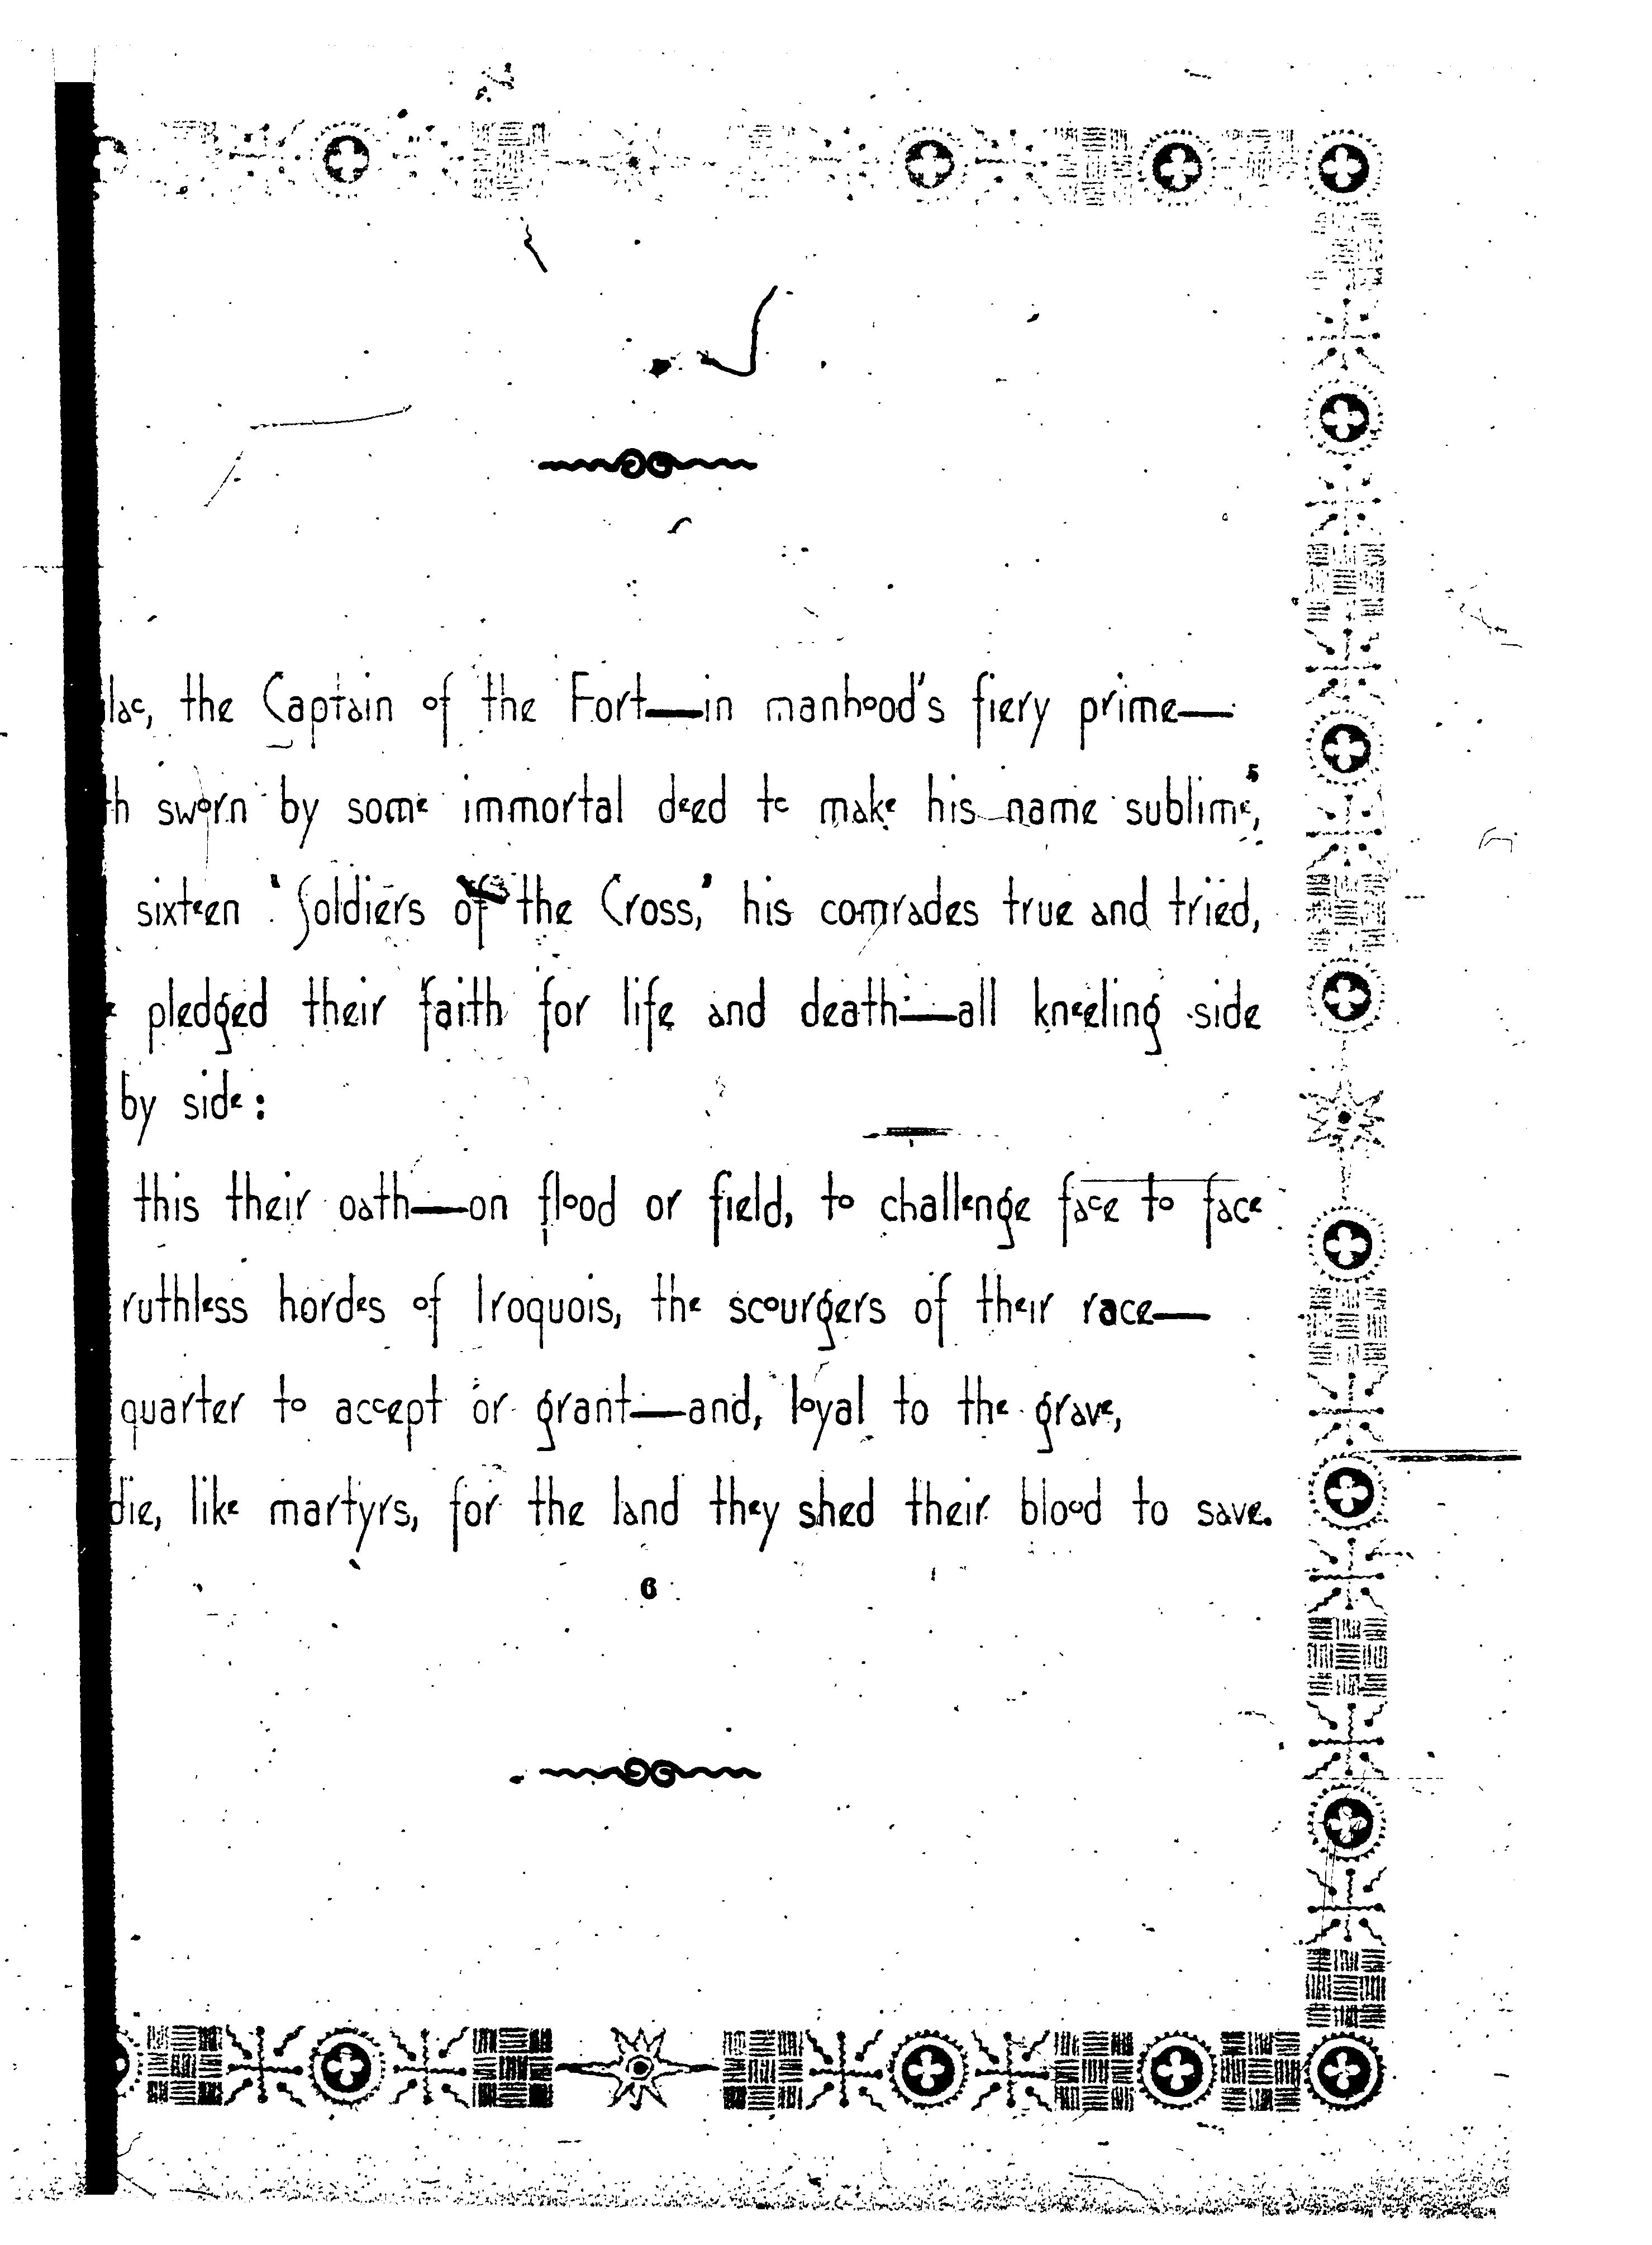 the Captain of the Fort—in manhood's fiery prime—
sworn by some immortal deed to make his name sublime,⁵
sixteen 'Soldiers of the Cross,' his comrades true and tried,
pledged their faith for life and death—all kneeling side
by side:
this their oath—on flood or field, to challenge face to face
ruthless hordes of Iroquois, the scourgers of their race—
quarter to accept or grant—and, loyal to the grave,
die, like martyrs, for the land they shed their blood to save.
6